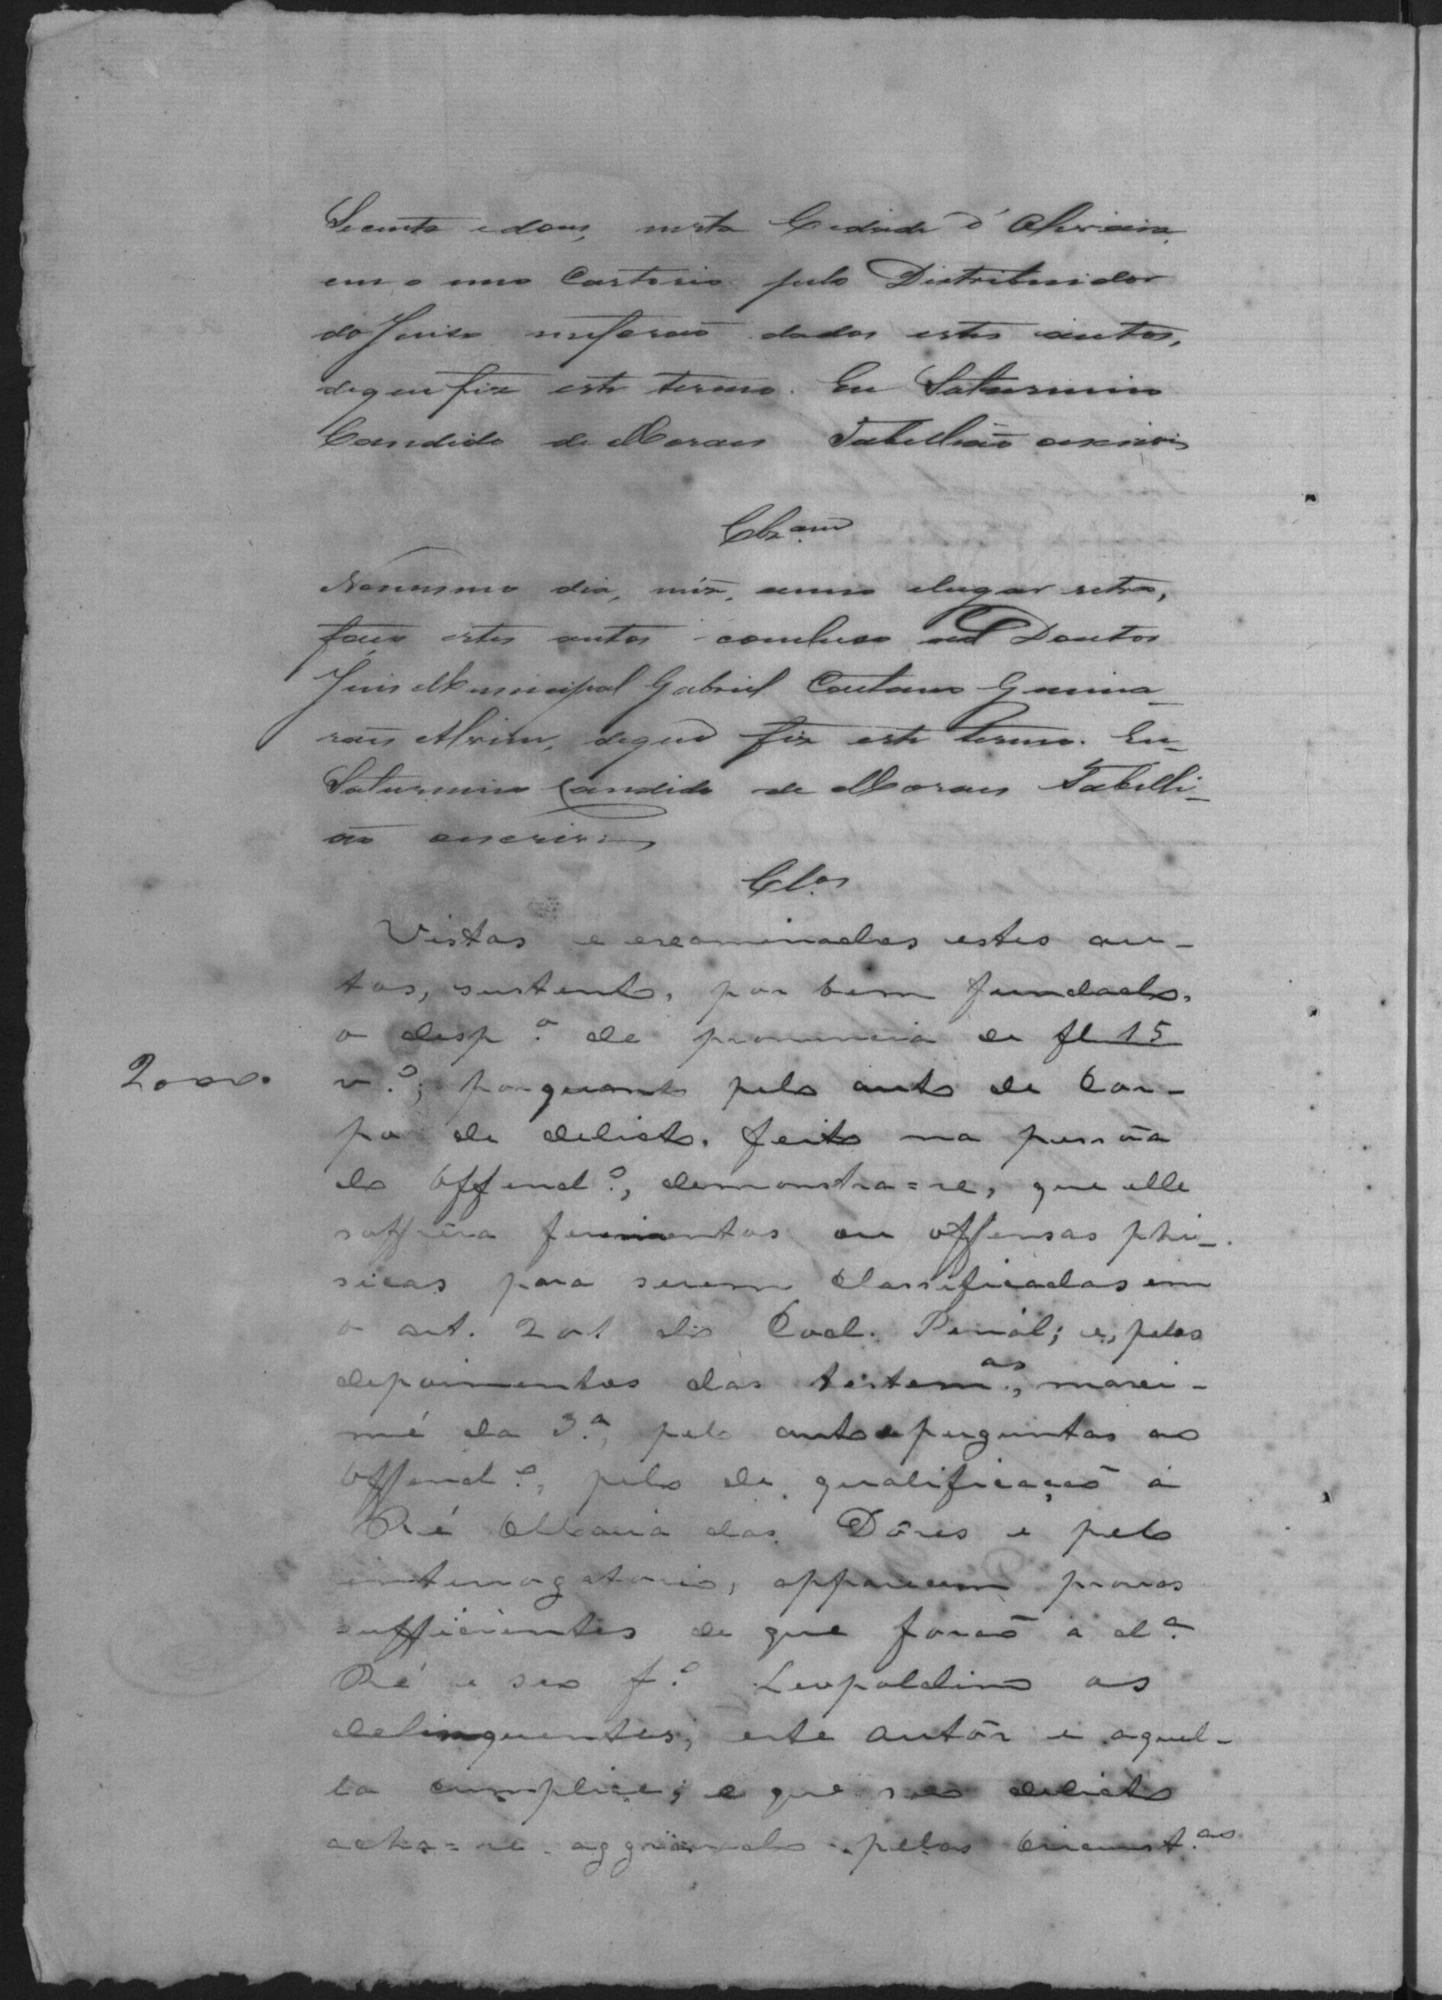 Secenta e dous, nesta Cidade d'Oliveira
em o meo Cartorio pelo Distribuidor
do Juiso me forão dados estes autos,
de que fiz este termo. Eu Saturnino
Candido de Moraes Tabellião escrivi
Clzam
No mesmo dia, mez, anno elugar retro,
faço estes autos concluso ao Doutor
Juis Municipal Gabriel Caetano Guima-
raes Alvim, deque fiz este termo. Eu
Saturnino Candido de Moraes Tabelli-
ão escrivi
Cl.os
Vistos e examinados estes au-
tos, sustento, por bem fundado,
o desp.o de pronuncia de fl 15
2000.
v.o; porquanto pelo auto de Cor-
po de delicto, feito na pessôa
do Offend.o, demonstra=se, que elle
soffrêra ferimentos ou offensas phi-
sicas para serem classificadas em
o art. 201 do Cod. Penal; e, pelos
depoimentos das testem.as, maxi-
mé da 3.a, pelo auto de perguntas ao
Offend.o, pelo de qualificação á
Ré Maria das Dôres e pelo
interrogatorio, apparecem provas
sufficientes de que forão a d.a
Ré e seo f.o Leopoldino os
delinquentes; este autôr e aquel-
la cumplice; e que seo delicto
acha=se aggravado pelas Circunst.as